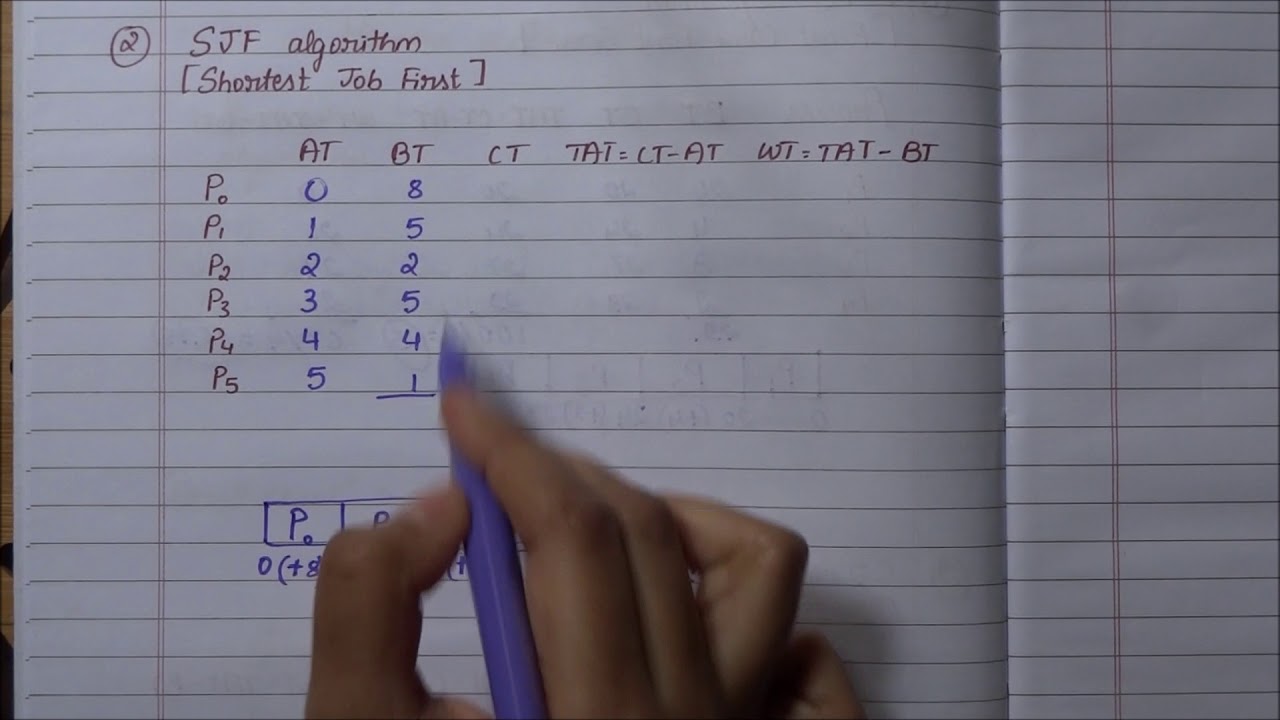 ② SJF algorithm
[Shortest Job First]
AT BT CT TAT=CT-AT WT=TAT-BT
P₀ 0 8
P₁ 1 5
P₂ 2 2
P₃ 3 5
P₄ 4 4
P₅ 5 1
P₀
0(+8